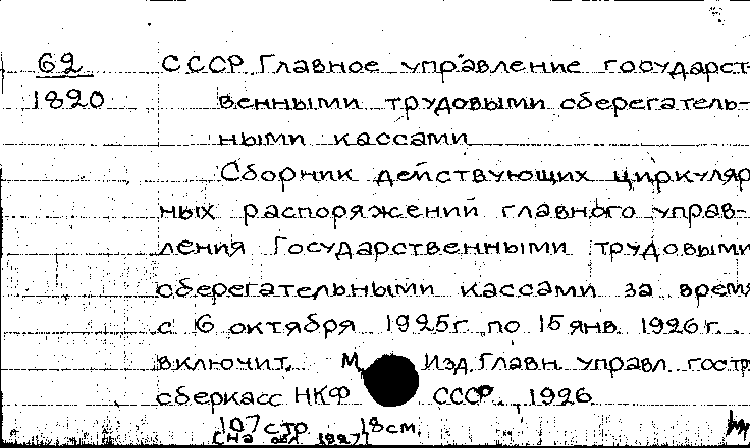 62
1820
СССР. Главное управление государст-
венными трудовыми сберегатель-
ными кассами
Сборник действующих циркуляр
ных распоряжений главного управ-
ления Государственными трудовыми
сберегательными кассами за время
с 6 октября 1925г. по 15 янв. 1926г.
включит. М, Изд. Главн. управл. гостр
сберкасс НКФ СССР, 1926
107 стр 18 см.
[На обл. 1927]